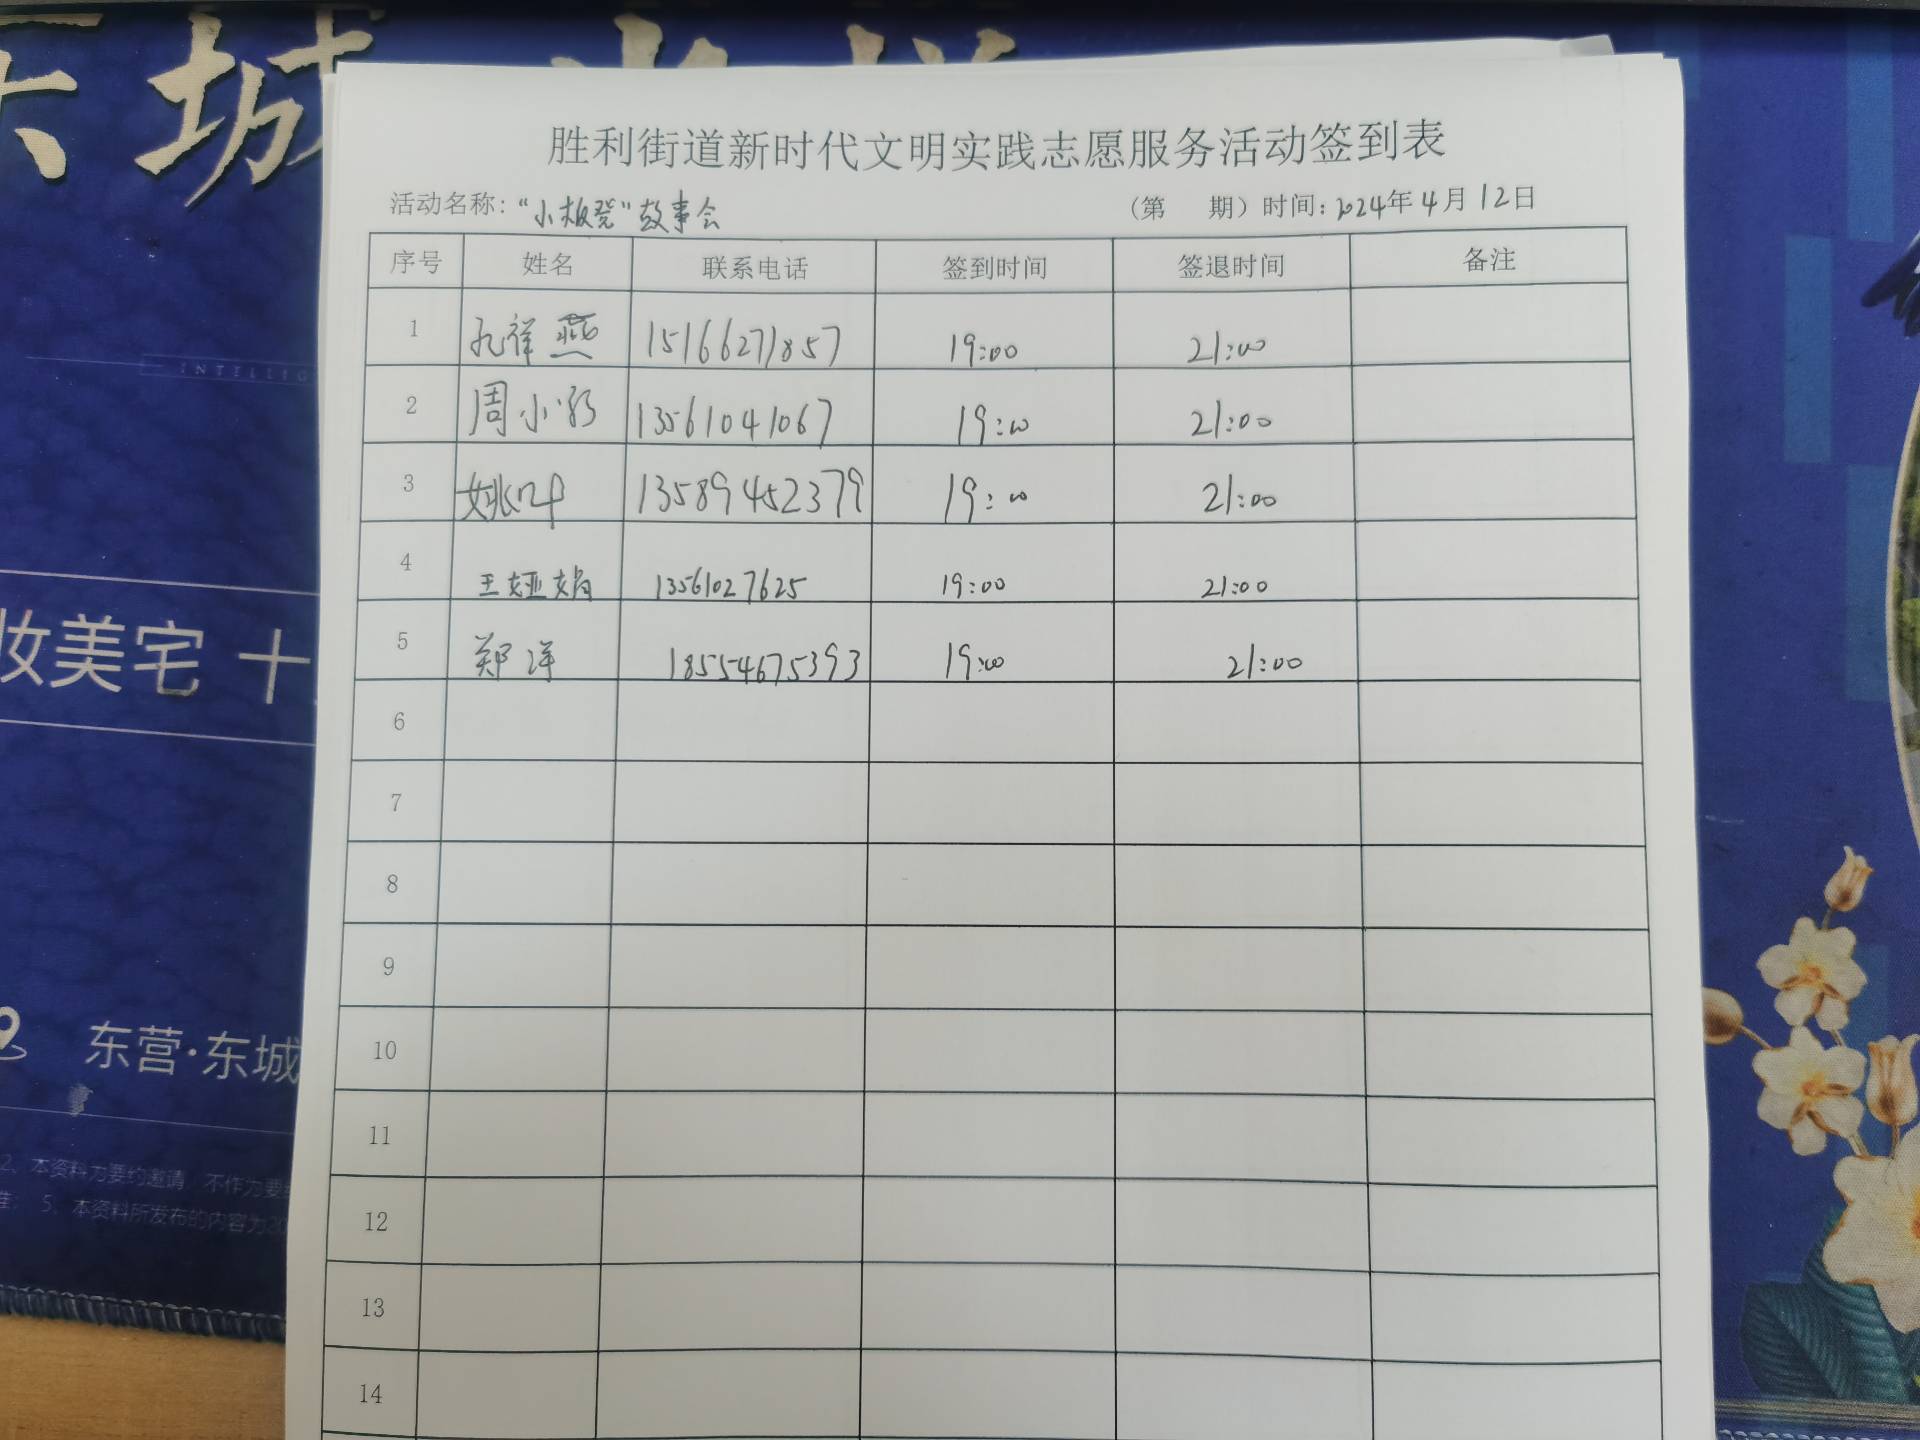 东城
胜利街道新时代文明实践志愿服务活动签到表
活动名称：“小板凳”故事会 （第 期）时间：2024年4月12日
序号 姓名 联系电话 签到时间 签退时间 备注
1 孔祥燕 15166271857 19:00 21:00
2 周小 13561041067 19:00 21:00
3 姚叶 13589452379 19:00 21:00
4 王娅娟 13561027625 19:00 21:00
5 郑洋 18554675393 19:00 21:00
6
7
8
9
10
11
12
13
14
妆美宅 十
东营·东城
2、本资料为要约邀请，不作为要
5、本资料所发布的内容为20
INTELLIG